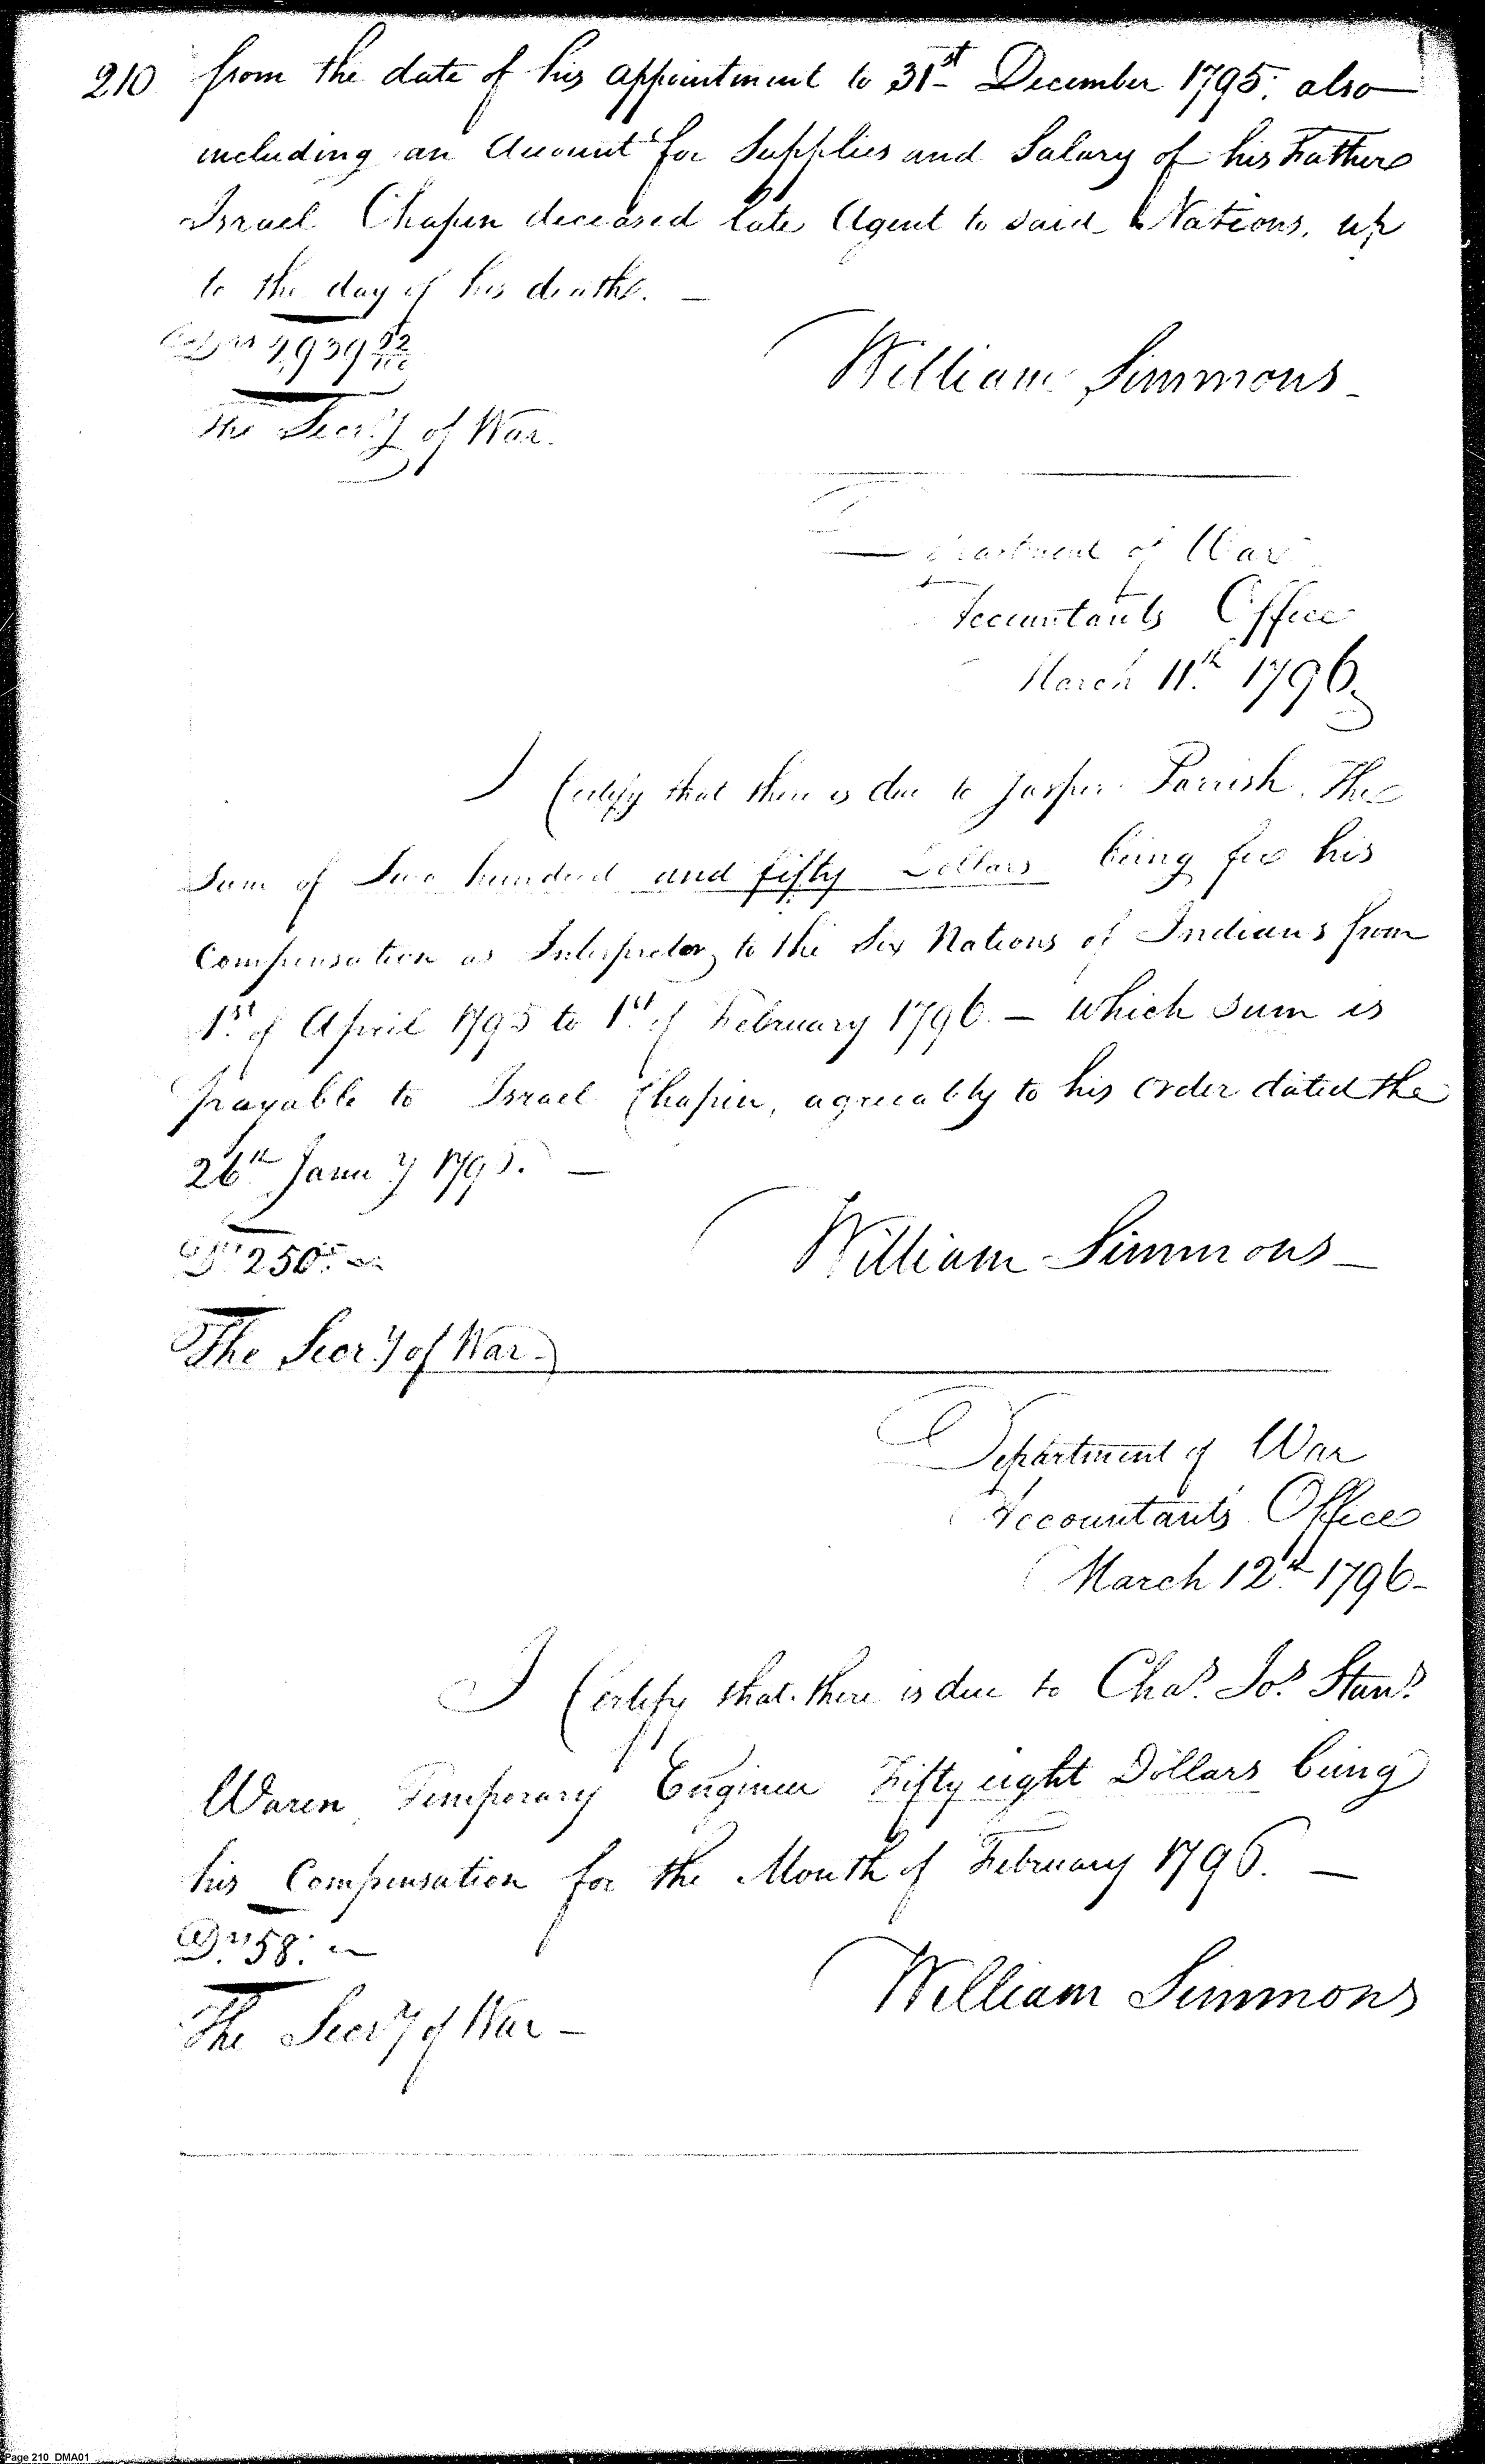 210 from the date of his appointment to 31st December 1795. also
including an Account for Supplies and Salary of his Father
Israel Chapin deceased late Agent to said Nations, up
to the day of his death. —
William Simmons
The Secr'y of War.
Department of War
Accountants Office
March 11th 1796.
I Certify that there is due to Jasper Parrish. The
Sum of Two hundred and fifty Dollars being for his
Compensation as Interpretor, to the Six Nations of Indians from
1st of April 1795 to 1st of February 1796. — which sum is
payable to Israel Chapin, agreeably to his order dated the
26th Janu'y 1795. —
Drs 250. —
William Simmons —
The Secr'y of War.
Department of War
Accountants Office
March 12th 1796 —
I Certify that there is due to Chas. Jos. Stans.
Waren Temporary Engineer Fifty eight Dollars being
his Compensation for the Month of February 1796. —
Drs 58. —
William Simmons
The Secr'y of War —
Page 210 DMA01